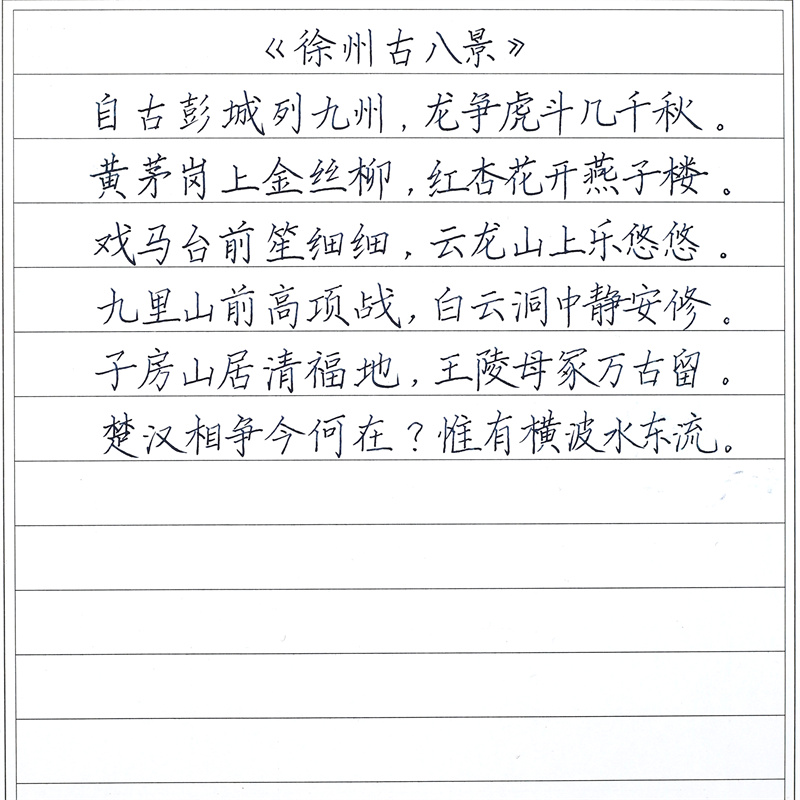 《徐州古八景》
自古彭城列九州，龙争虎斗几千秋。
黄茅岗上金丝柳，红杏花开燕子楼。
戏马台前笙细细，云龙山上乐悠悠。
九里山前高项战，白云洞中静安修。
子房山居清福地，王陵母冢万古留。
楚汉相争今何在？惟有横波水东流。